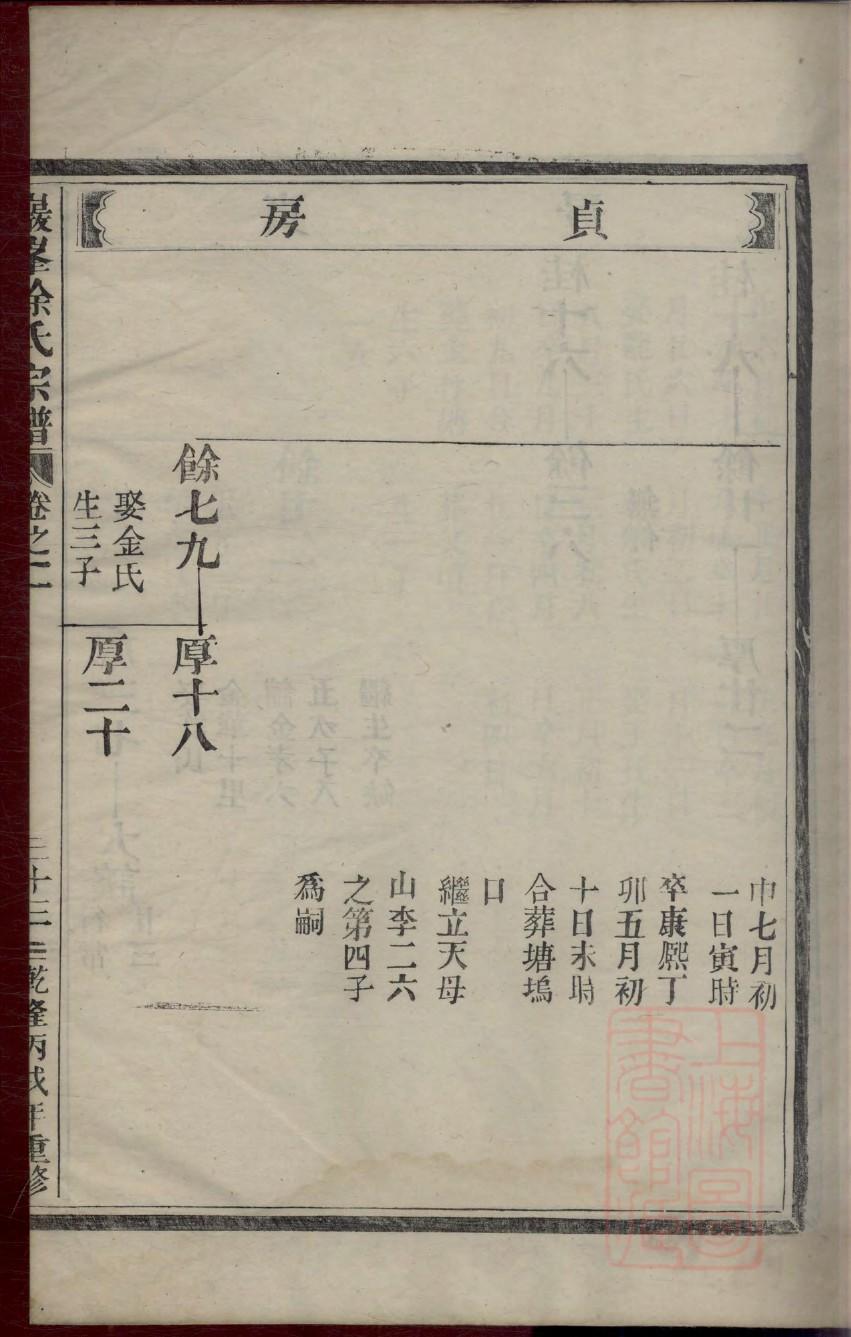 貞房
申七月初
一日寅時
卒康熈丁
卯五月初
十日未時
合葬塘塢
口
繼立天母
山李二六
之第四子
爲嗣
餘七九
娶金氏
生三子
厚十八
厚二十
巖峯徐氏宗譜
卷之二
二十三
乾隆丙戌年重修
上海圖書館藏